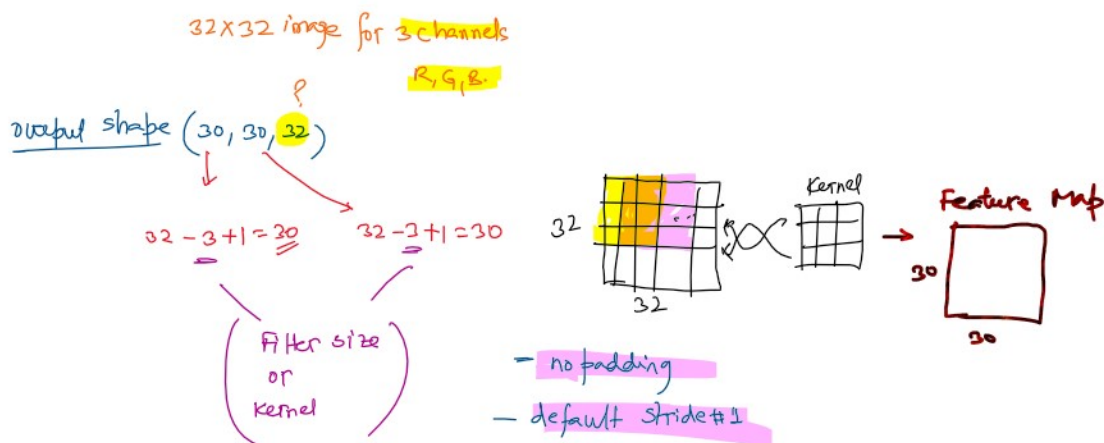 32x32 image for 3 channels
R, G, B.
?
output shape (30, 30, 32)
32 - 3 + 1 = 30
32 - 3 + 1 = 30
(Filter size
or
kernel)
32
32
...
Kernel
→
Feature Map
30
30
- no padding
- default stride #1